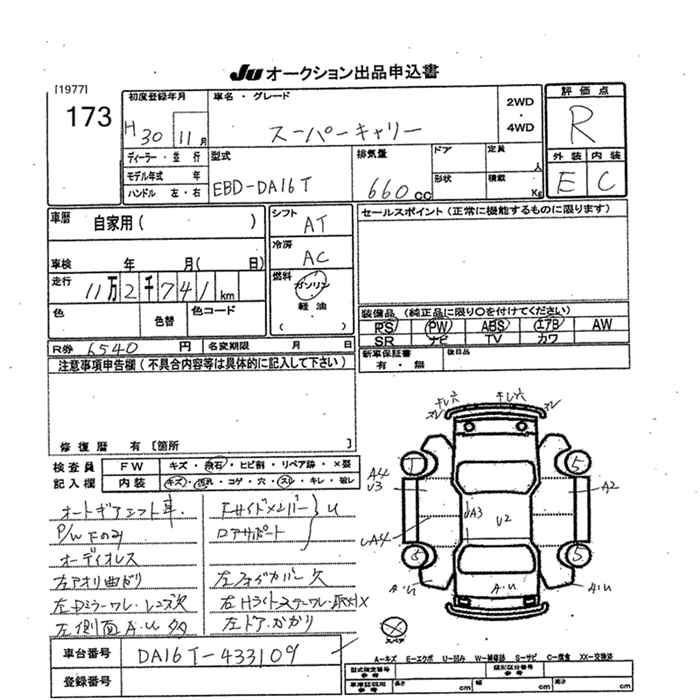 JU オークション出品申込書
[1977]
173
初度登録年月
H30 11月
ディーラー・並行
モデル年式 年
ハンドル 左・右
車名・グレード
スーパーキャリー
2WD
・
4WD
型式
EBD-DA16T
排気量
660cc
ドア
定員
人
形状
積載
Kg
評価点
R
外装 内装
E C
車歴
自家用( )
車検 年 月( 日)
走行
11万2千741km
色
色替
色コード
シフト
AT
冷房
AC
燃料
ガソリン
・
軽油
( )
セールスポイント(正常に機能するものに限ります)
装備品(純正品に限り○を付けてください)
PS PW ABS エアB AW
SR ナビ TV カワ
R券 6540 円
名変期限 月 日
新車保証書
有・無
後日品
注意事項申告欄(不具合内容等は具体的に記入して下さい)
修復歴 有[箇所 ]
検査員
記入欄
FW
キズ・飛石・ヒビ割・リペア跡・×要
内装
キズ・汚れ・コゲ・穴・スレ・キレ・破レ
オートギアシフト車.
P/W Fのみ
オーディオレス
左アオリ曲がり
左Dミラーワレ・レンズ欠
左側面A.U多
Fサイドメンバー
ロアサポート
U
左フォグカバー欠
左Hライトステーワレ・取付X
左ドア・カカリ
車台番号
DA16T-433109
登録番号
キレ穴
キレ穴
ワレ
ワレ
A4
U3
UA4
A2
UA3
U2
5
5
5
A.U
A.U
A.U
スペア
A-キズ E-エクボ U-凹み W-補修跡 S-サビ C-腐食 XX-交換済
型式指定番号
類別区分番号
車庫証明
参考
長さ cm
幅 cm
高さ cm